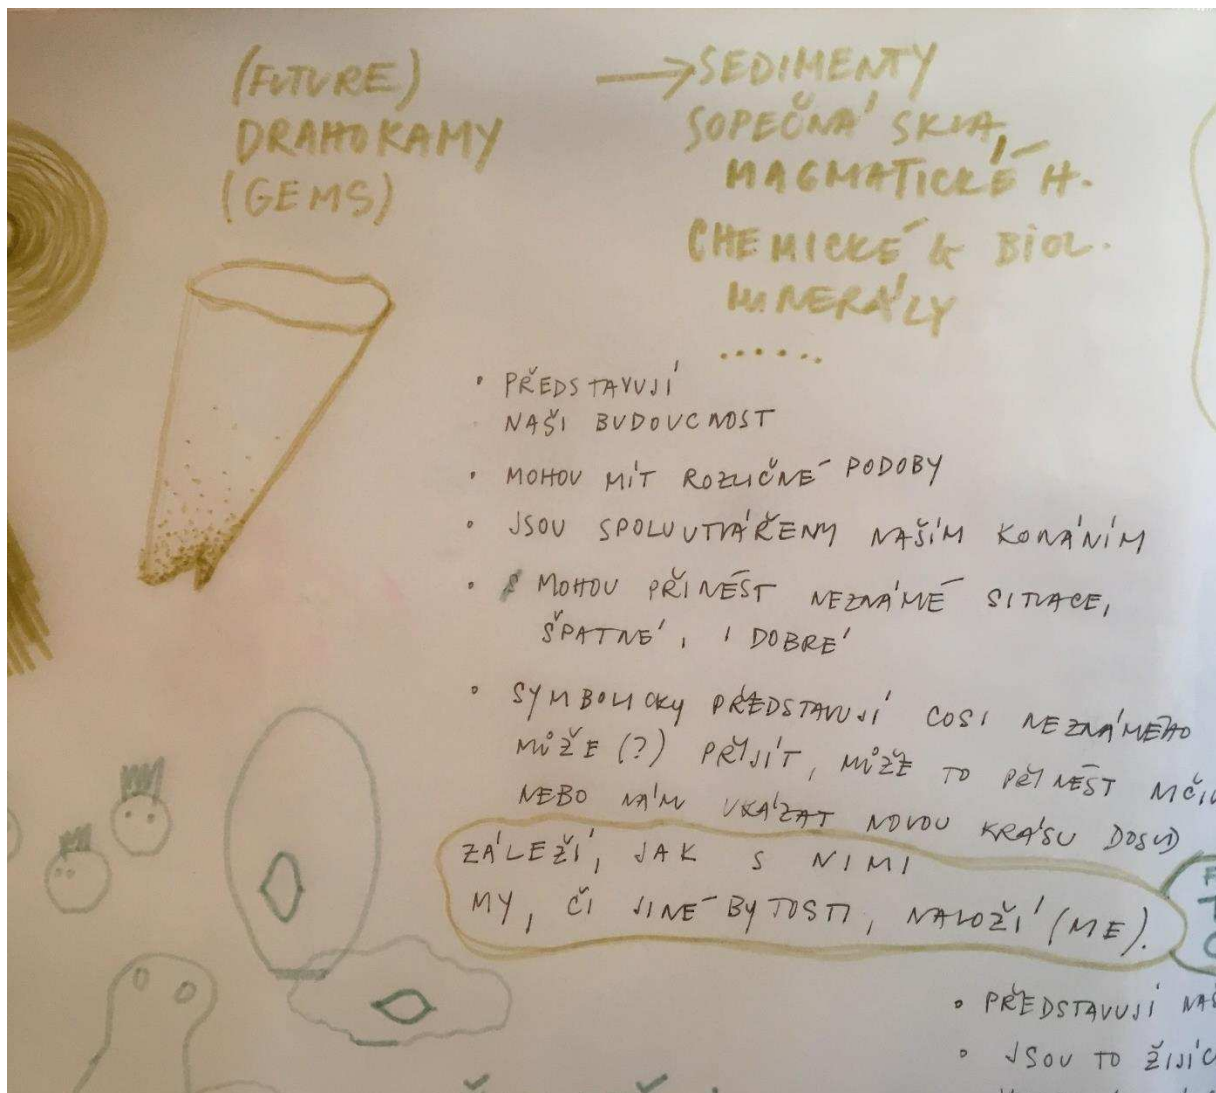 (FUTURE)
DRAHOKAMY
(GEMS)
→ SEDIMENTY
SOPEČNÁ SKLA,
MAGMATICKÉ H.
CHEMICKÉ & BIOL.
MINERÁLY
......
• PŘEDSTAVUJÍ
NAŠI BUDOUCNOST
• MOHOU MÍT ROZLIČNÉ PODOBY
• JSOU SPOLUUTVÁŘENY NAŠÍM KONÁNÍM
• MOHOU PŘINÉST NEZNÁMÉ SITUACE,
ŠPATNÉ, I DOBRÉ
• SYMBOLICKY PŘEDSTAVUJÍ COSI NEZNÁMÉHO
MŮŽE (?) PŘIJÍT, MŮŽE TO PŘINÉST
NEBO NÁM UKÁZAT NOVOU KRÁSU DOSUD
ZÁLEŽÍ, JAK S NIMI
MY, ČI JINÉ BYTOSTI, NALOŽÍ (ME).
• PŘEDSTAVUJÍ
• JSOU TO